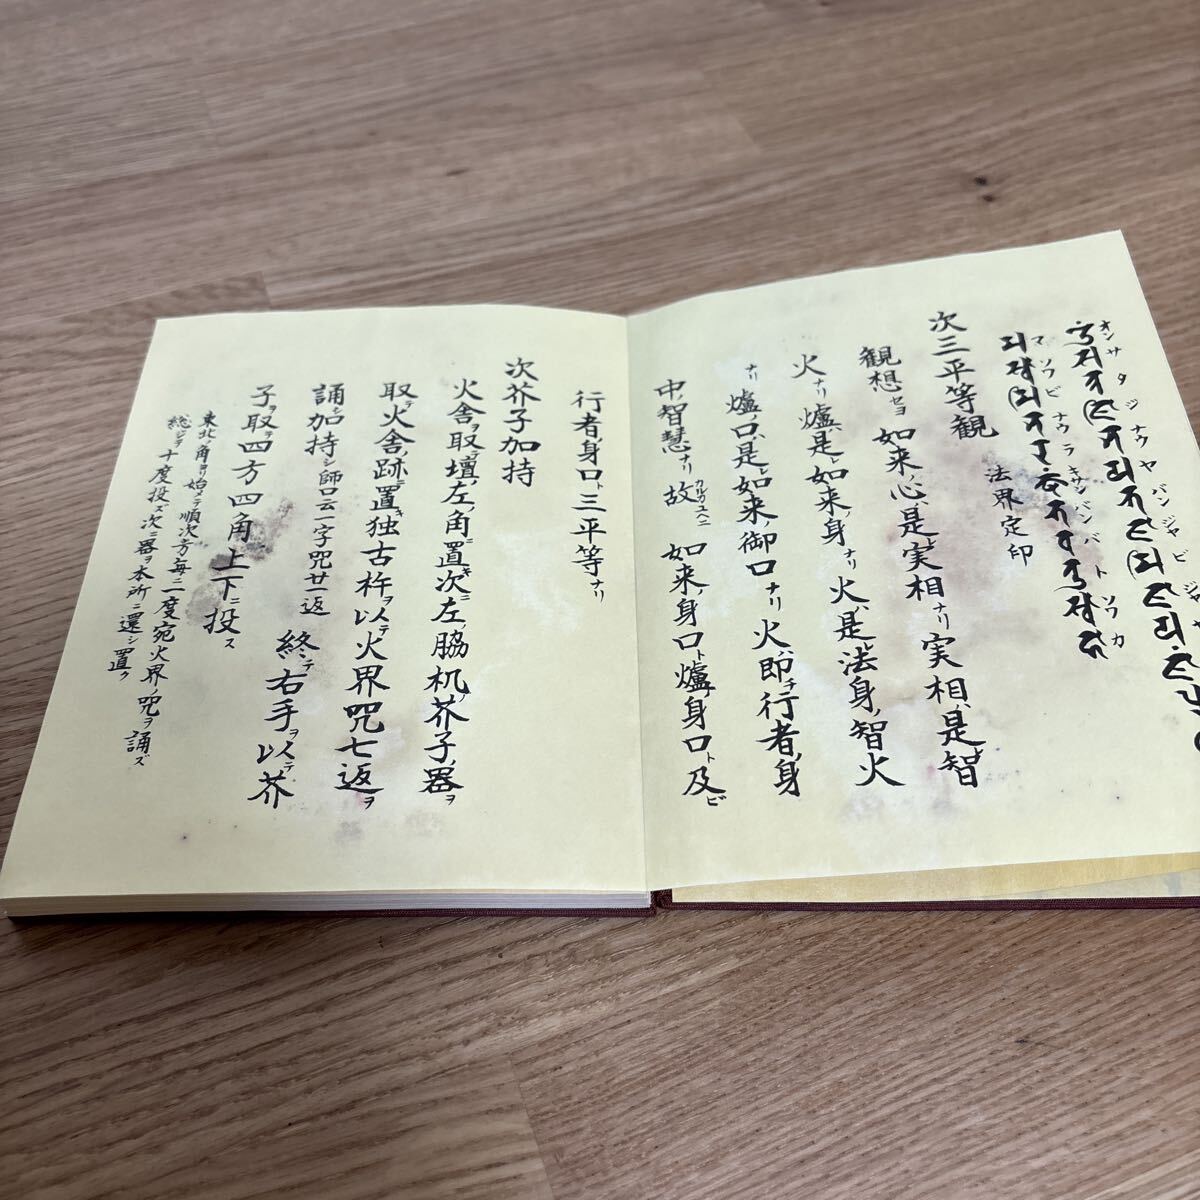 オンサタジナウヤバンジャビジャヤ
マソワビナウラキサンバンバトソワカ
次三平等観 法界定印
観想セヨ如来ノ心ハ是実相ナリ実相ハ是智
火ナリ爐ハ是レ如来ノ身ナリ火ハ是レ法身ノ智火
ナリ爐ノ口ハ是レ如来ノ御口ナリ火ハ即チ行者ノ身
中ノ智慧ナリ故ニ如来ノ身口ト爐ノ身口ト及ビ
行者ノ身口ト三平等ナリ
次芥子加持
火舎ヲ取テ壇ノ左ノ角ニ置キ次ニ左ノ脇机ノ芥子ノ器ヲ
取テ火舎ノ跡ニ置キ独古杵ヲ以テ火界咒七返ヲ
誦シ加持シ師口云一字咒廿一返 終テ右手ヲ以テ芥
子ヲ取テ四方四角上下ニ投ス
東北ノ角ヨリ始メテ順次方毎ニ一度宛火界ノ咒ヲ誦ズ
総ジテ十度投ズ次ニ器ヲ本所ニ還シ置ク